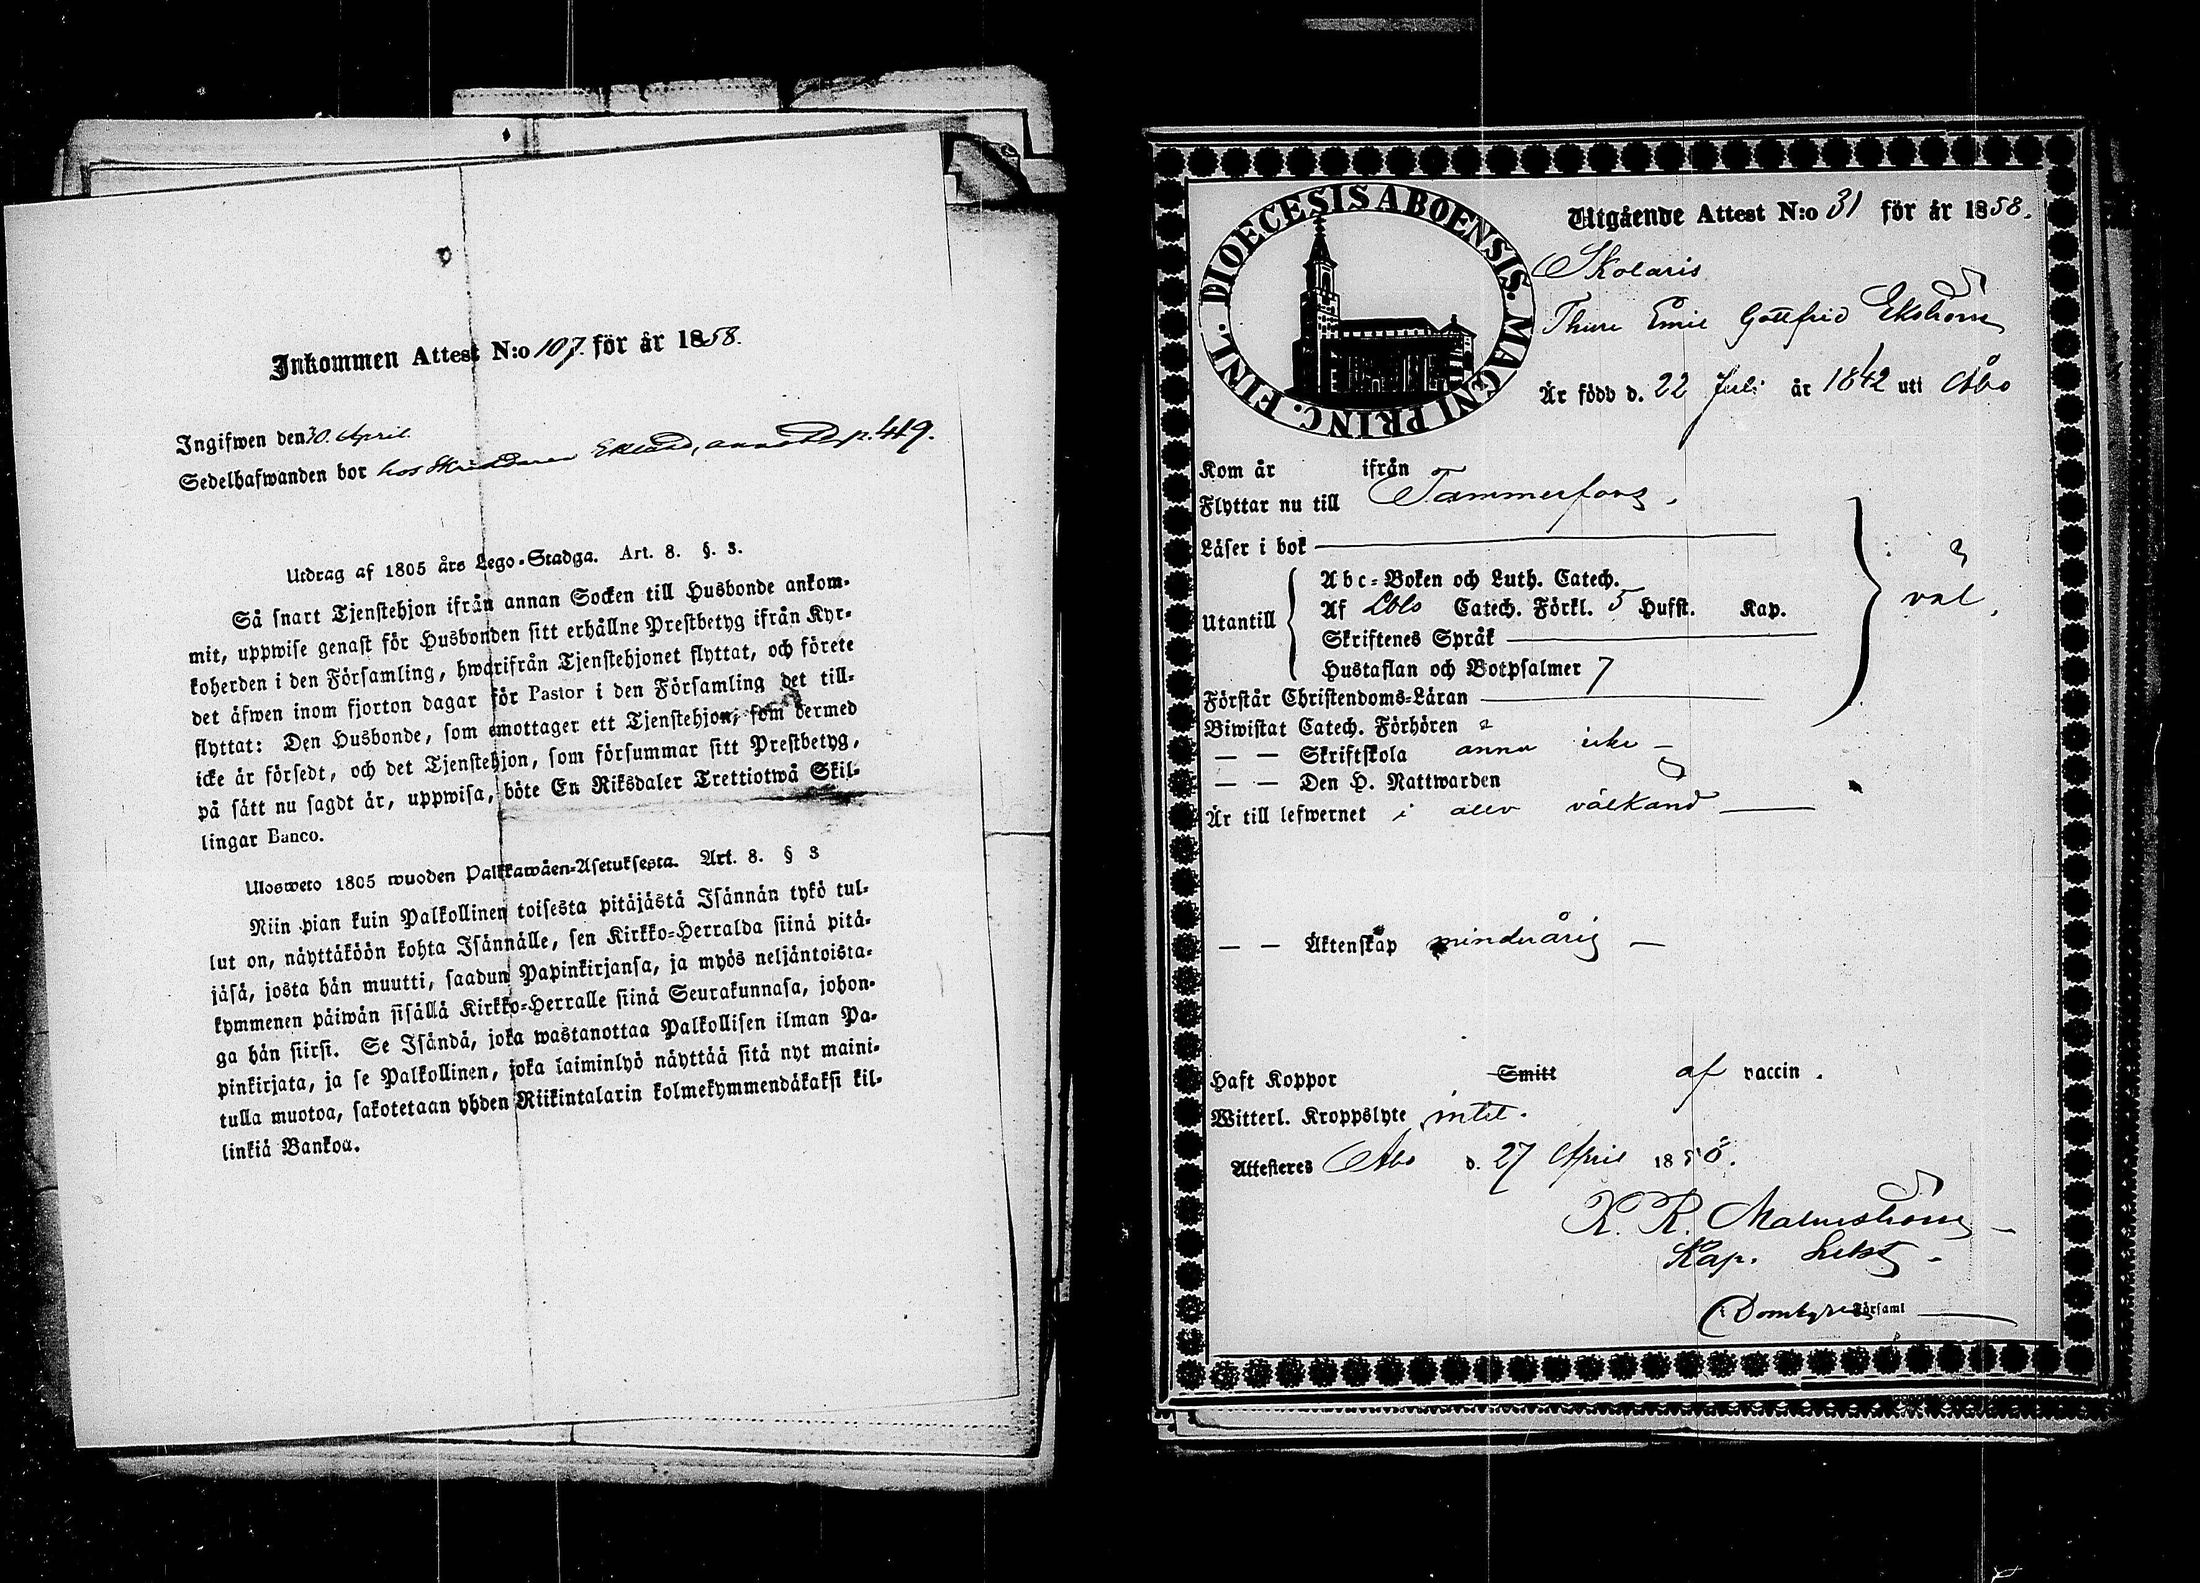 Inkommen Attest N:o 107. för år 1858.
Ingifwen den 30. April.
Sedelhafwanden bor hos Eklund, 449.
Utdrag af 1805 års Lego-Stadga. Art. 8. §. 3.
Så snart Tjenstehjon ifrån annan Socken till Husbonde ankom-
mit, uppwise genast för Husbonden sitt erhållne Prestbetyg ifrån Kyr-
koherden i den Församling, hwarifrån Tjenstehjonet flyttat, och förete
det äfwen inom fjorton dagar för Pastor i den Församling det till-
flyttat: Den Husbonde, som emottager ett Tjenstehjon, som dermed
icke är försedt, och det Tjenstehjon, som försummar sitt Prestbetyg,
på sätt nu sagdt är, uppwisa, böte En Riksdaler Trettiotwå Skil-
lingar Banco.
Ulosweto 1805 wuoden Palkkawäen-Asetuksesta. Art. 8. § 3
Niin pian kuin Palkollinen toisesta pitäjästä Isännän tykö tul-
lut on, näyttäköön kohta Isännälle, sen Kirkko-Herralda siinä pitä-
jäsä, josta hän muutti, saadun Papinkirjansa, ja myös neljäntoista-
kymmenen päiwän sisällä Kirkko-Herralle siinä Seurakunnasa, johon-
ga hän siirsi. Se Isändä, joka wastanottaa Palkollisen ilman Pa-
pinkirjata, ja se Palkollinen, joka laiminlyö näyttää sitä nyt maini-
tulla muotoa, sakotetaan yhden Riikintalarin kolmekymmendäkaksi kil-
linkiä Bankoa.
DIOECESIS ABOENSIS. MAGNI PRINC. FINL.
Utgående Attest N:o 31 för år 1858.
Skolaris
Thure Emil Gottfrid Ekström
Är född d. 22 Juli år 1842 uti Åbo
Kom år ifrån
Flyttar nu till Tammerfors.
Läser i bok
Utantill
Abc-Boken och Luth. Catech.
Af Catech. Förkl. 5 Hufst. Kap.
Skriftenes Språk
Hustaflan och Botpsalmer 7
väl.
Förstår Christendoms-Läran
Biwistat Catech. Förhören
— — Skriftskola ännu icke —
— — Den H. Nattwarden
Är till lefwernet i allo välkänd
— — Äktenskap minderårig —
Haft Koppor Smitt af vaccin.
Witterl. Kroppslyte intet.
Attesteres Åbo d. 27 April 1858.
K. R. Malmström
Kap.
i Domkyrko Församl